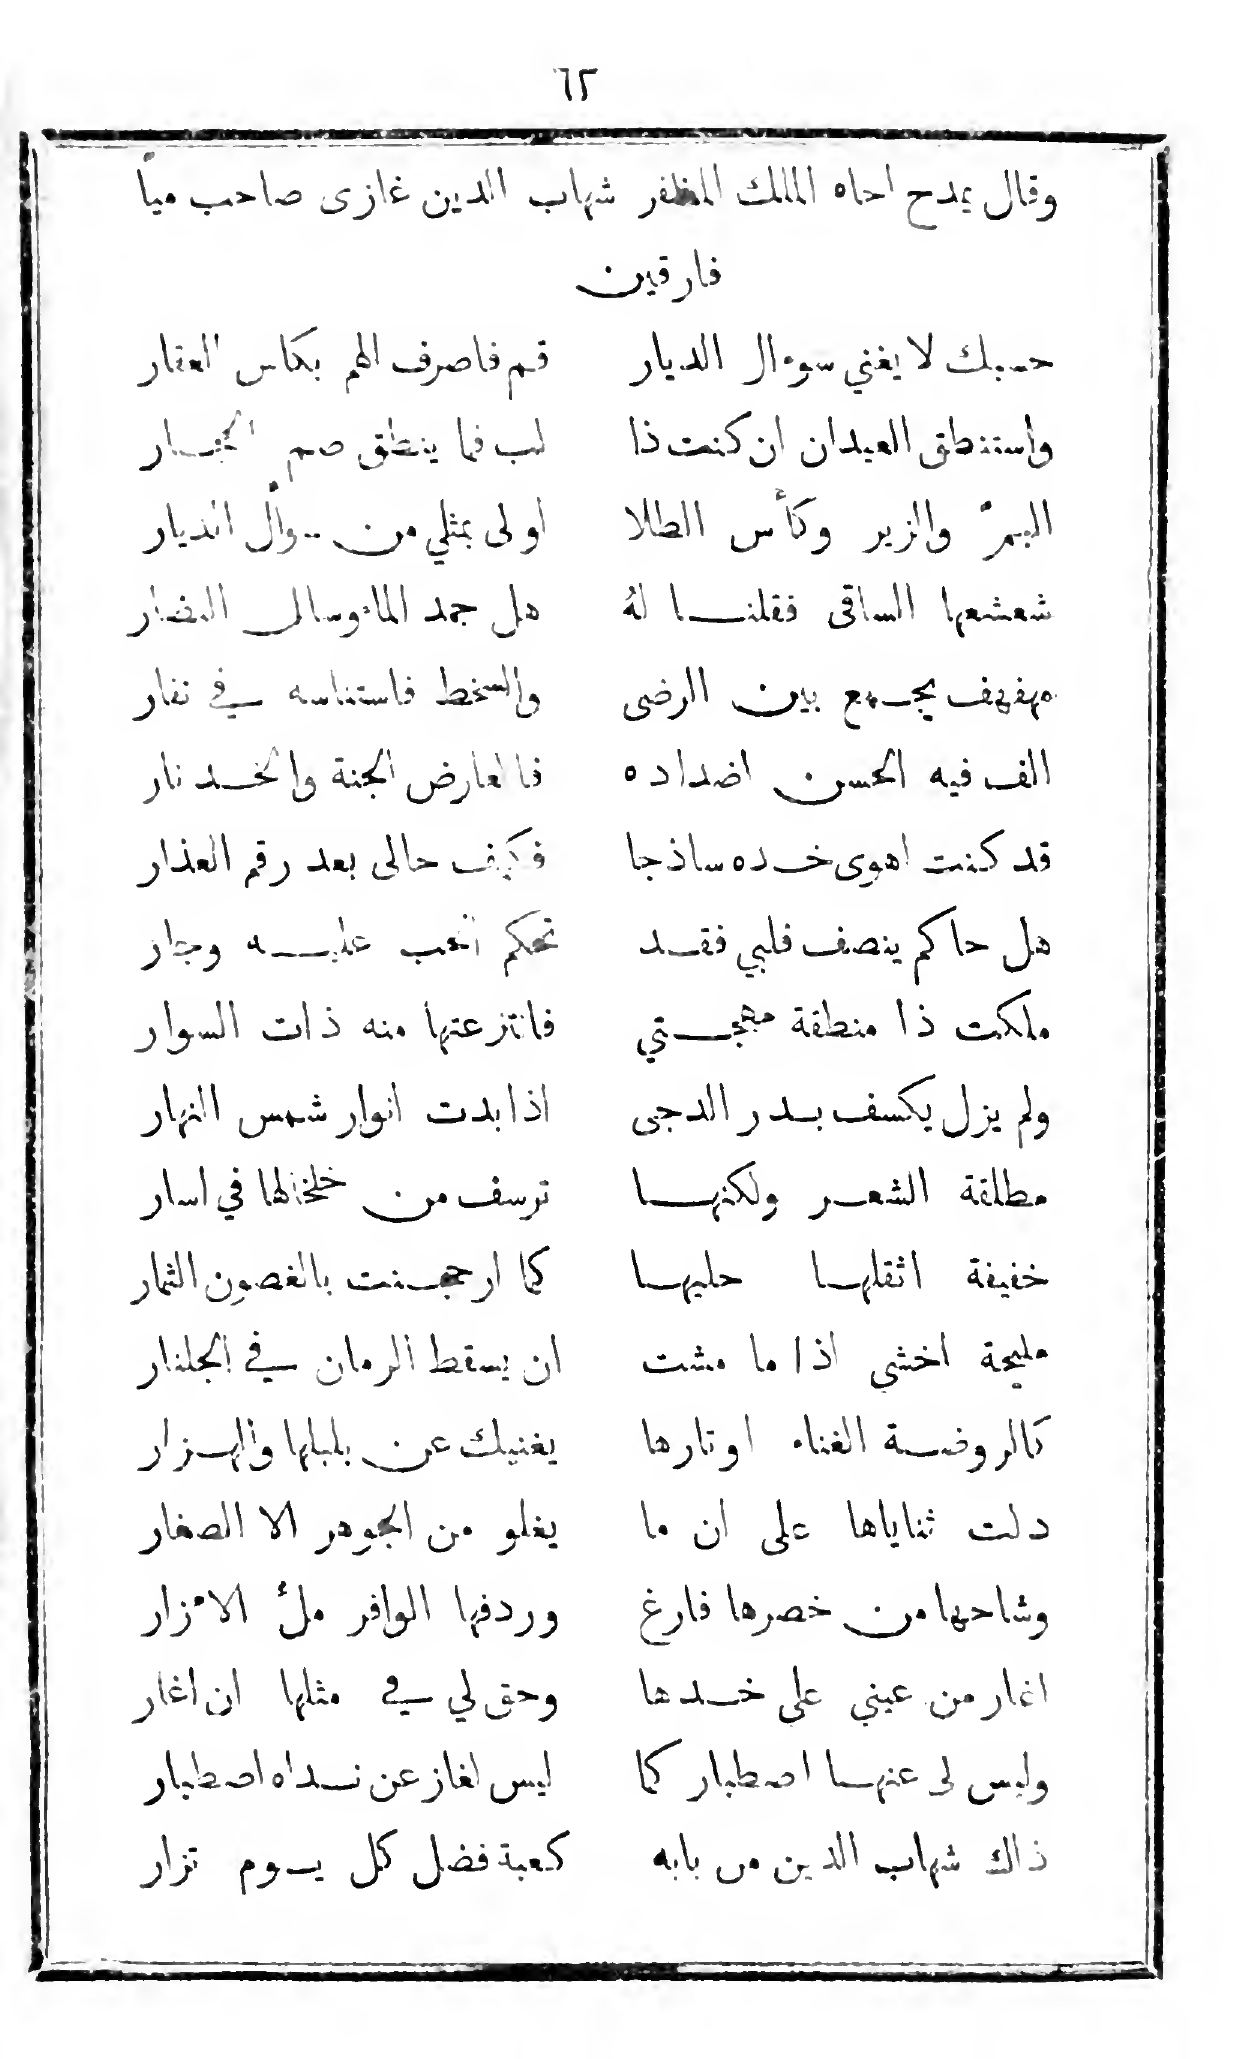 ٦٢
وقال يمدح اخاه الملك المظفر شهاب الدين غازى صاحب ميا
فارقين
حسبك لا يغني سوءال الديار قم فاصرف الهم بكاس العقار
واستنطق العيدان ان كنت ذا لب فما ينطق صم
البمّ والزير وكأس الطلا اولى بمثلي من سوال الديار
شعشعها الساقى فقلنا لهُ هل جمد الماء وسال النضار
مهفهف يجمع بين الرضى والسخط فاستناسه في نفار
الف فيه الحسن اضداده فالعارض الجنة والخد نار
قد كنت اهوى خده ساذجا فكيف حالى بعد رقم العذار
هل حاكم ينصف قلبي فقد تحكم الحب عليه وجار
ملكت ذا منطقة مهجتي فانتزعتها منه ذات السوار
ولم يزل يكسف بدر الدجى اذا بدت انوار شمس النهار
مطلقة الشعر ولكنها ترسف من خلخالها في اسار
خفيفة اثقلها حليها كما ارجحنت بالغصون الثمار
مليحة اخشى اذا ما مشت ان يسقط الرمان في الجلنار
كالروضة الغناء اوتارها يغنيك عن بلبلها والهزار
دلت ثناياها على ان ما يغلو من الجوهر الا الصغار
وشاحها من خصرها فارغ وردفها الوافر ملُ الاءزار
اغار من عيني على خدها وحق لي في مثلها ان اغار
وليس لى عنها اصطبار كما ليس لغاز عن نداه اصطبار
ذاك شهاب الدين من بابه كعبة فضل كل يوم تزار